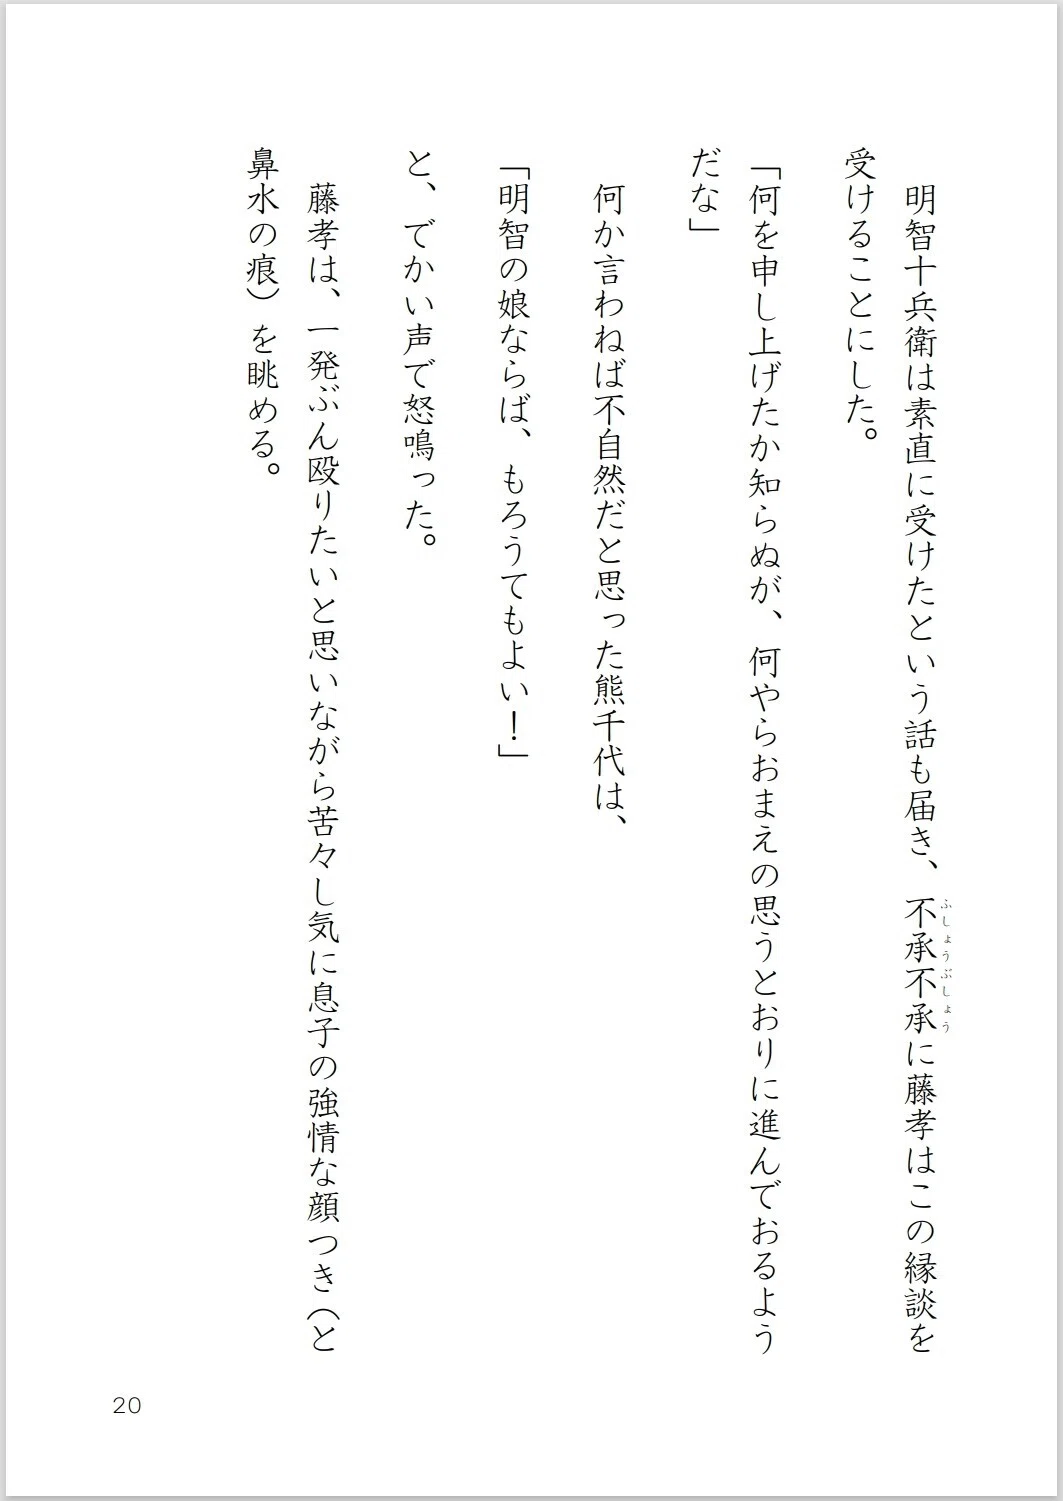 明智十兵衛は素直に受けたという話も届き、不承不承に藤孝はこの縁談を
ふしょうぶしょう
受けることにした。
「何を申し上げたか知らぬが、何やらおまえの思うとおりに進んでおるよう
だな」
　何か言わねば不自然だと思った熊千代は、
「明智の娘ならば、もろうてもよい！」
と、でかい声で怒鳴った。
　藤孝は、一発ぶん殴りたいと思いながら苦々し気に息子の強情な顔つき（と
鼻水の痕）を眺める。
20